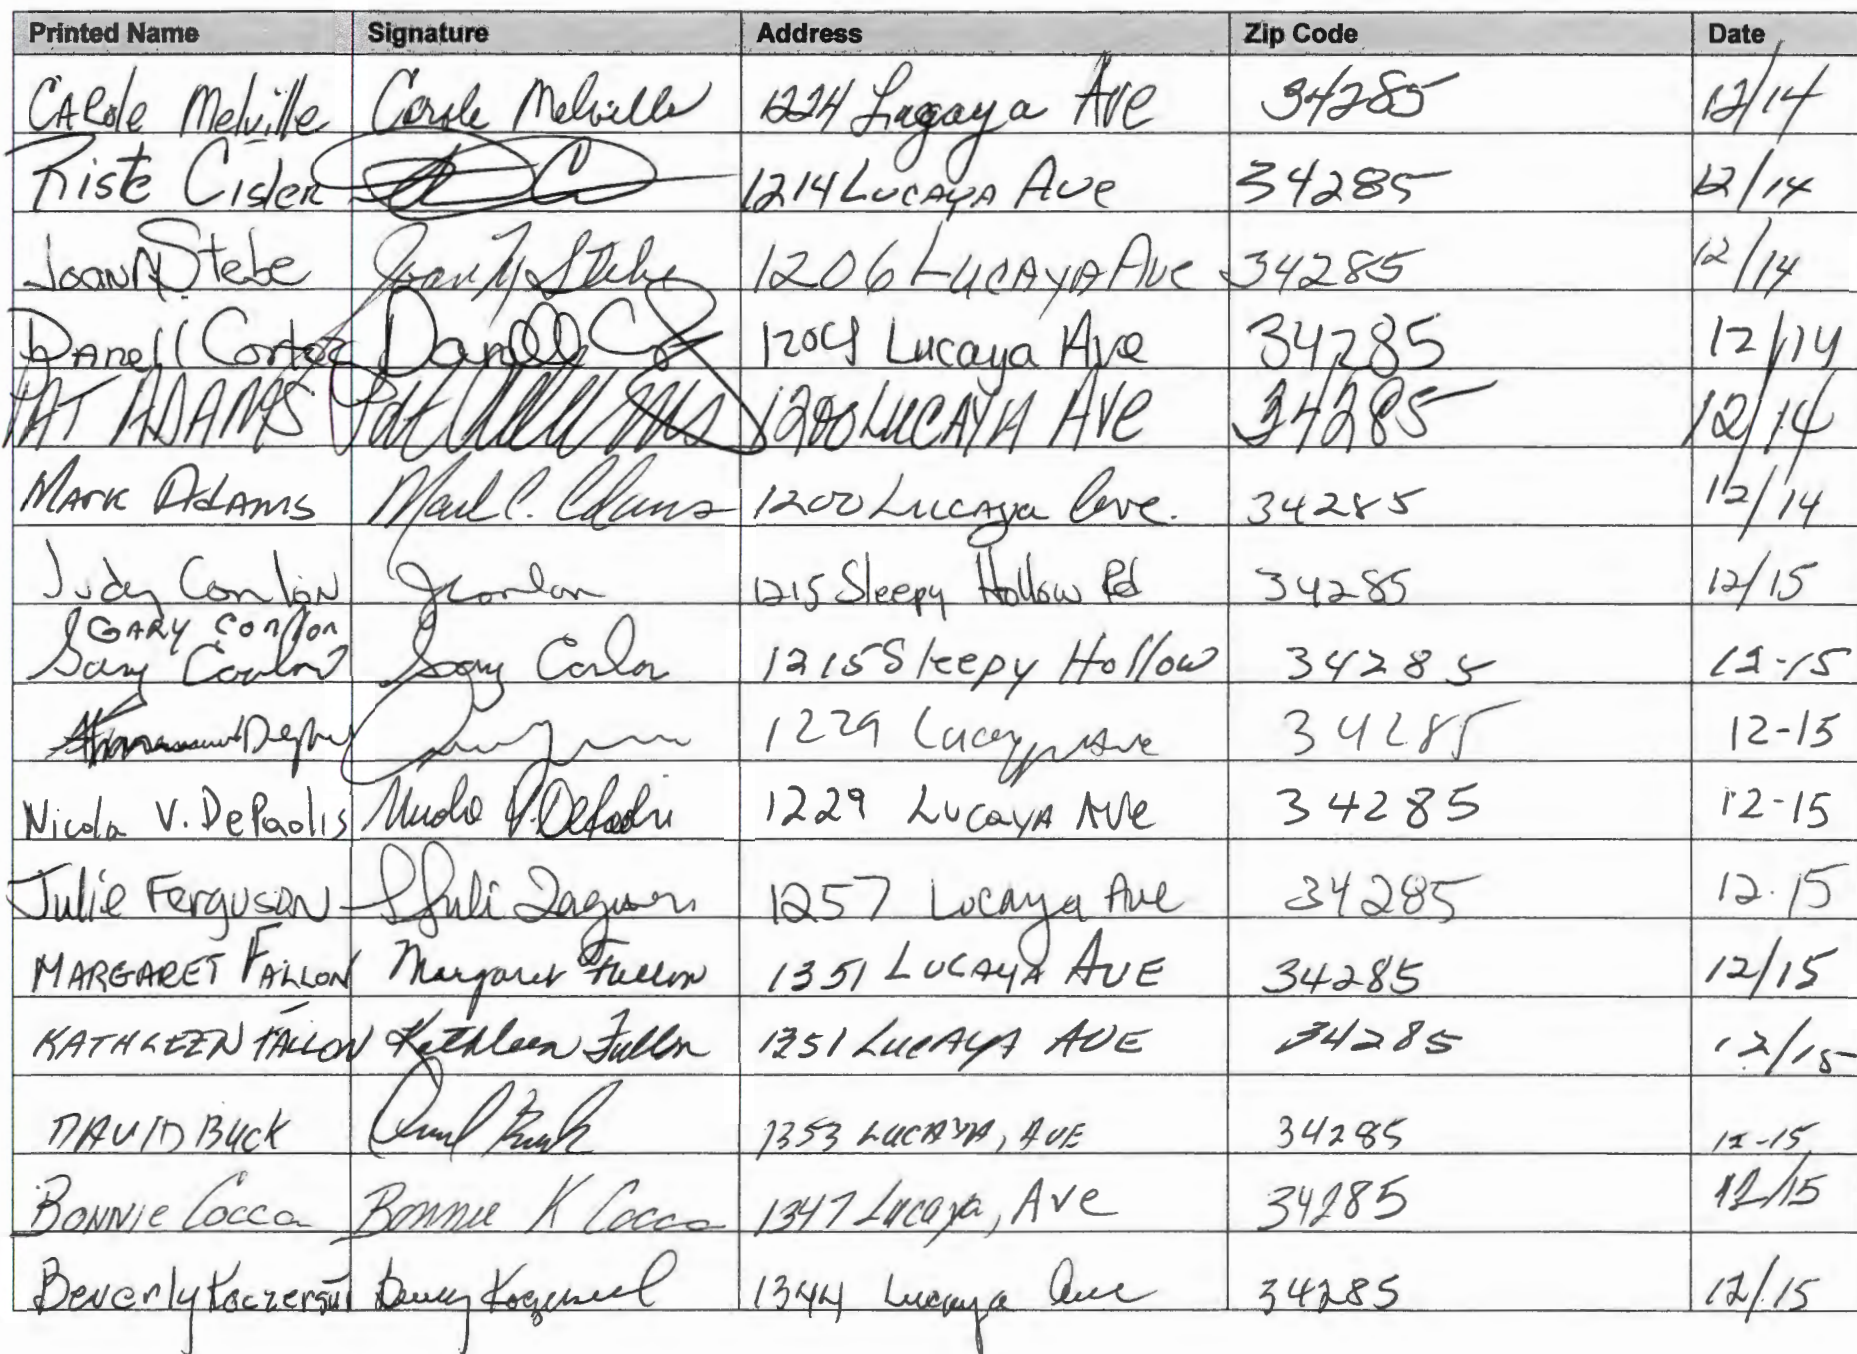 Printed Name Signature Address Zip Code Date
Carole Melville Carole Melville 1224 Lugaya Ave 34285 12/14
Riste Cisler 1214 Lucaya Ave 34285 12/14
Joan M Stebe Joan M Stebe 1206 Lucaya Ave 34285 12/14
Danell Danell 1204 Lucaya Ave 34285 12/14
PAT ADAMS Pat Adams 1200 LUCAYA AVE 34285 12/14
Mark Adams Mark C. Adams 1200 Lucaya Ave. 34285 12/14
Judy Conlon JConlon 1215 Sleepy Hollow Rd 34285 12/15
GARY Conlon
Gary Conlon Gary Conlon 1215 Sleepy Hollow 34285 12-15
1229 Lucaya Ave 34285 12-15
Nicola V. DePaolis Nicola V. DePaolis 1229 Lucaya Ave 34285 12-15
Julie Ferguson Juli Ferguson 1257 Lucaya Ave 34285 12.15
MARGARET FALLON Margaret Fallon 1351 LUCAYA AVE 34285 12/15
KATHLEEN FALLON Kathleen Fallon 1351 LUCAYA AVE 34285 12/15
DAVID BUCK David Buck 1353 LUCAYA, AVE 34285 12-15
Bonnie Cocca Bonnie K Cocca 1347 Lucaya, Ave 34285 12/15
Beverly 1344 Lucaya Ave 34285 12/15